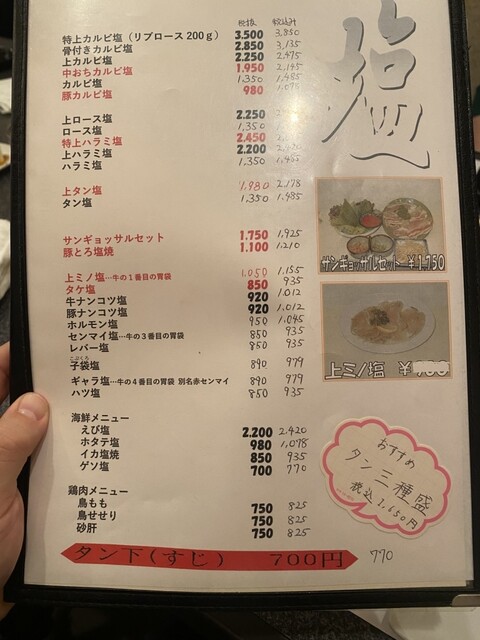 塩
税抜 税込み
特上カルビ塩（リブロース200g） 3,500 3,850
骨付きカルビ塩 2.850 3,135
上カルビ塩 2.250 2,475
中おちカルビ塩 1.950 2,145
カルビ塩 1,350 1,485
豚カルビ塩 980 1,078
上ロース塩 2.250
ロース塩 1,350
特上ハラミ塩 2.450
上ハラミ塩 2.200
ハラミ塩 1,350 1,485
上タン塩 1,980 2,178
タン塩 1,350 1,485
サンギョッサルセット 1.750 1,925
豚とろ塩焼 1.100 1,210
上ミノ塩…牛の1番目の胃袋 1,050 1,155
タケ塩 850 935
牛ナンコツ塩 920 1,012
豚ナンコツ塩 920 1,012
ホルモン塩 950 1,045
センマイ塩…牛の3番目の胃袋 850 935
レバー塩 850 935
こぶくろ
子袋塩 890 979
ギャラ塩…牛の4番目の胃袋 別名赤センマイ 890 979
ハツ塩 850 935
海鮮メニュー
えび塩 2.200 2,420
ホタテ塩 980 1,078
イカ塩焼 850 935
ゲソ塩 700 770
鶏肉メニュー
鳥もも 750 825
鳥せせり 750 825
砂肝 750 825
タン下(すじ) 700円 770
サンギョッサルセット ¥1,750
上ミノ塩 ¥
おすすめ
タン三種盛
税込2,650円